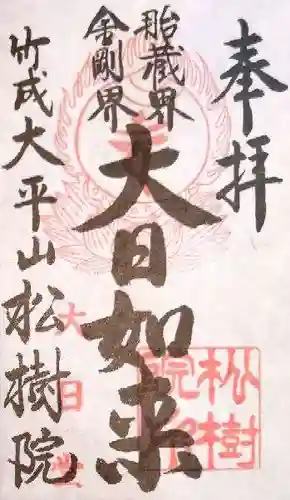 奉拝
胎蔵界
金剛界
大日如来
竹成大平山松樹院
松樹院
大日